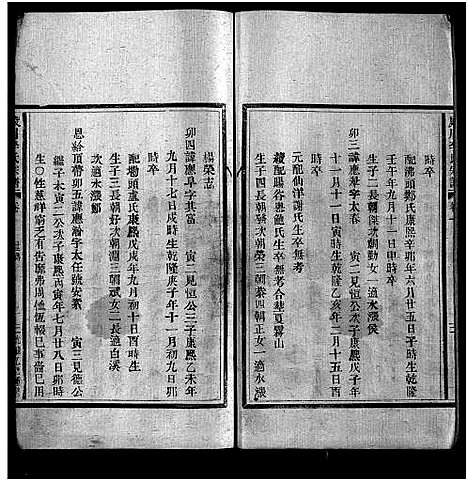 時卒
配佛頭鄭氏康熙辛卯年六月廿五日子時生乾隆
壬午年九月十一日申時卒
生子二長朝傑次朝勳女一適水漈侯
卯三諱應華字太春　寅二見恒公次子康熙戊子年
十一月十一日寅時生乾隆乙亥年二月十五日酉
時卒
元配仙洋謝氏生卒無考
續配暘谷應鮑氏生卒無考合墓夏霧山
生子四長朝登次朝榮三朝棠四朝正女一適水漈
楊榮志
卯四諱應早字其富　寅二見恒公三子康熙乙未年
九月十七日戌時生乾隆庚子年十一月初九日卯
時卒
配墈頭盧氏康熙戊戌年九月初十日酉時生
生子三長朝好次朝淵三朝斌女二長適白溪
次適水漈鄭
恩給頂帶卯五諱應瀚字太任號安素　寅三見德公
繼子本寅二公次子康熙丙寅年七月廿八日卯時
生〇性慈祥窮乏有告靡弗周恤恆報已事嗇已用